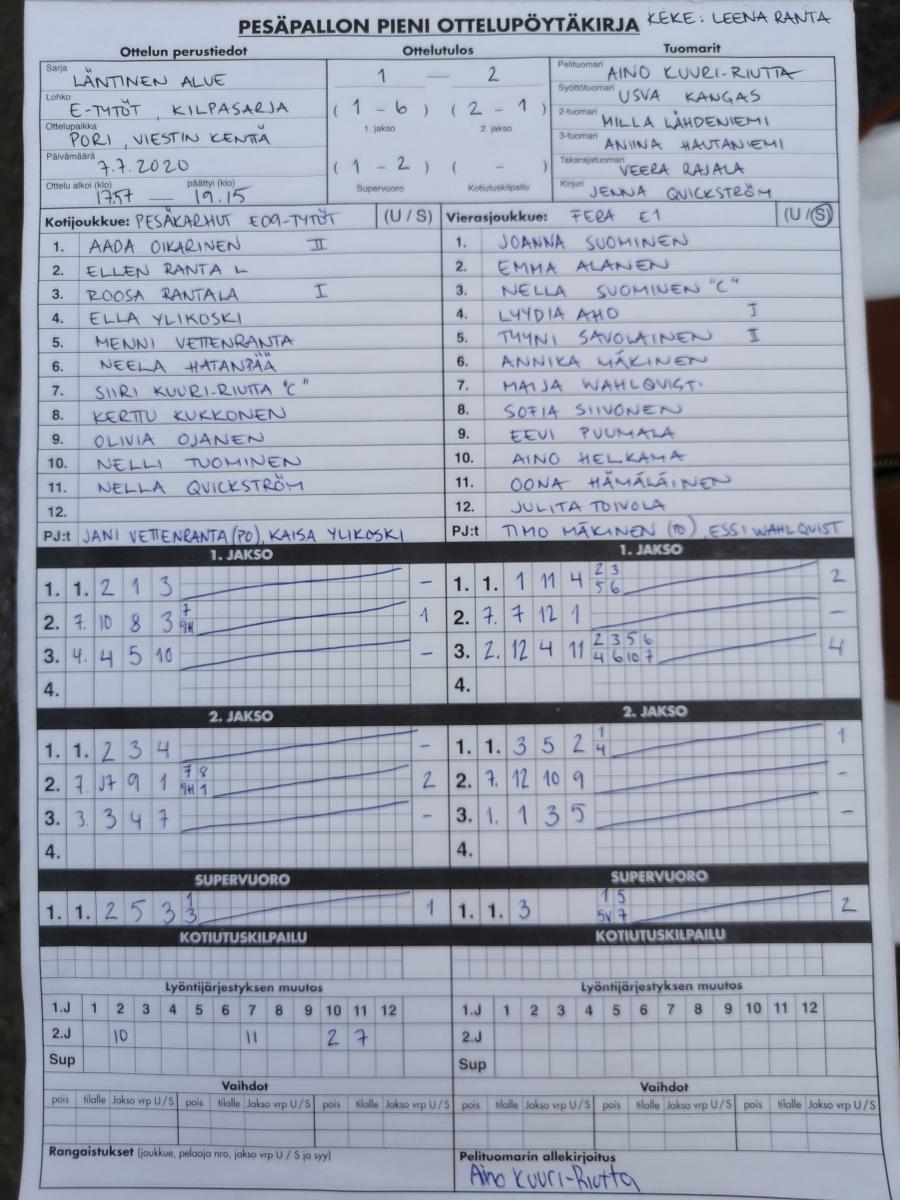 PESÄPALLON PIENI OTTELUPÖYTÄKIRJA KEKE: LEENA RANTA
Ottelun perustiedot Ottelutulos Tuomarit
Sarja LÄNTINEN ALUE
Lohko E-TYTÖT, KILPASARJA
Ottelupaikka PORI, VIESTIN KENTÄ
Päivämäärä 7.7.2020
Ottelu alkoi (klo) 17.57 — päättyi (klo) 19.15
1 — 2
(1 - 6) (2 - 1)
1. jakso 2. jakso
(1 - 2) ( - )
Supervuoro Kotiutuskilpailu
Pelituomari AINO KUURI-RIUTTA
Syöttötuomari USVA KANGAS
2-tuomari MILLA LÄHDENIEMI
3-tuomari ANIINA HAUTANIEMI
Takarajatuomari VEERA RAJALA
Kirjuri JENNA QUICKSTRÖM
Kotijoukkue: PESÄKARHUT E09-TYTÖT (U / S)
1. AADA OIKARINEN II
2. ELLEN RANTA L
3. ROOSA RANTALA I
4. ELLA YLIKOSKI
5. MENNI VETTENRANTA
6. NEELA HATANPÄÄ
7. SIIRI KUURI-RIUTTA "C"
8. KERTTU KUKKONEN
9. OLIVIA OJANEN
10. NELLI TUOMINEN
11. NELLA QVICKSTRÖM
12.
PJ:t JANI VETTENRANTA (PO), KAISA YLIKOSKI
Vierasjoukkue: FERA E1 (U / S)
1. JOANNA SUOMINEN
2. EMMA ALANEN
3. NELLA SUOMINEN "C"
4. LYYDIA AHO I
5. TYYNI SAVOLAINEN II
6. ANNIKA MÄKINEN
7. MAIJA WAHLQVIST.
8. SOFIA SIIVONEN
9. EEVI PUUMALA
10. AINO HELKAMA
11. OONA HÄMÄLÄINEN
12. JULITA TOIVOLA
PJ:t TIMO MÄKINEN (PO), ESSI WAHLQUIST
1. JAKSO
1. 1. 2 1 3 –
2. 7. 10 8 3 7 9H 1
3. 4. 4 5 10 –
4.
1. JAKSO
1. 1. 1 11 4 2 3 5 6 2
2. 7. 7 12 1 –
3. 2. 12 4 11 2 3 5 6 4 6 10 7 4
4.
2. JAKSO
1. 1. 2 3 4 –
2. 7. 9 1 7 8 9H 1 2
3. 3. 3 4 7 –
4.
2. JAKSO
1. 1. 3 5 2 1 4 1
2. 7. 12 10 9 -
3. 1. 1 3 5 –
4.
SUPERVUORO
1. 1. 2 5 3 1 3 1
SUPERVUORO
1. 1. 3 1 5 5V 7 2
KOTIUTUSKILPAILU KOTIUTUSKILPAILU
Lyöntijärjestyksen muutos
1.J 1 2 3 4 5 6 7 8 9 10 11 12
2.J 10 11 2 7
Sup
Lyöntijärjestyksen muutos
1.J 1 2 3 4 5 6 7 8 9 10 11 12
2.J
Sup
Vaihdot Vaihdot
pois tilalle Jakso vrp U / S pois tilalle Jakso vrp U / S pois tilalle Jakso vrp U / S
pois tilalle Jakso vrp U / S pois tilalle Jakso vrp U / S pois tilalle Jakso vrp U / S
Rangaistukset (joukkue, pelaaja nro, jakso vrp U / S ja syy)
Pelituomarin allekirjoitus
Aino Kuuri-Riutta